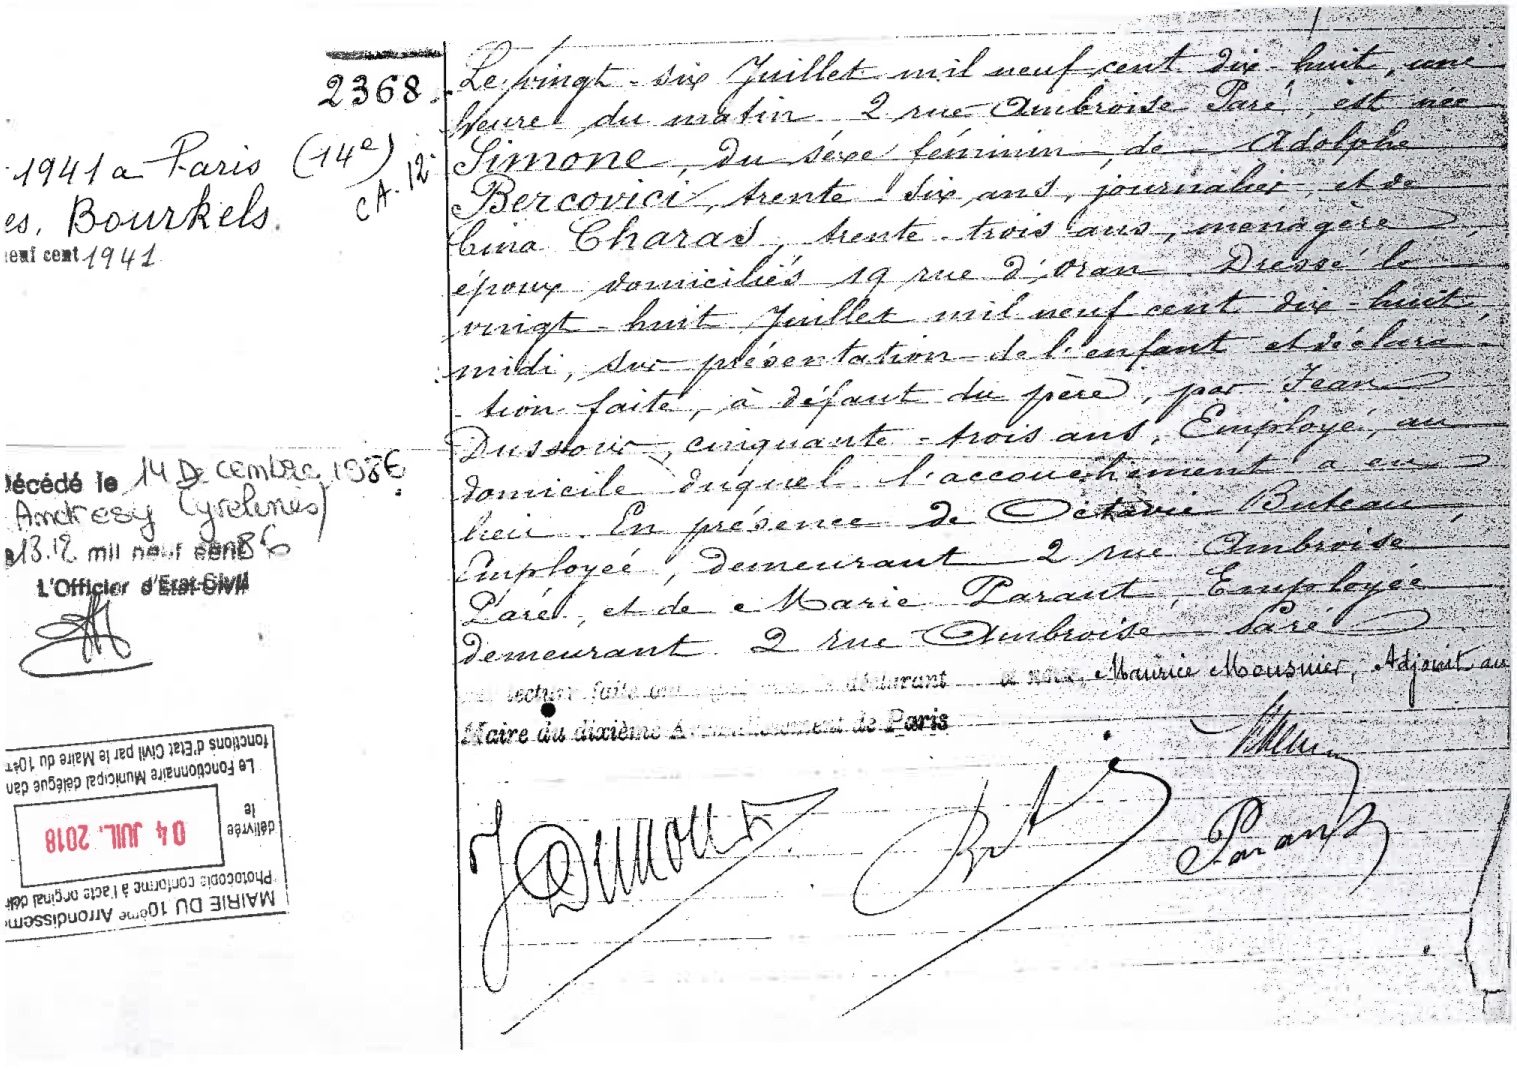 2368
1941 a Paris (14e)
CA. 12
es, Bourkels.
neuf cent 1941
Décédé le 14 Decembre 1986
Andresy (yvelines)
13.12 mil neuf cent 86
L'Officier d'Etat-Civil
Le vingt-six Juillet mil neuf cent dix-huit, une
heure du matin 2 rue Ambroise Paré, est née
Simone, du séxe féminin, de Adolphe
Bercovici, trente six ans, journalier, et de
Cina Charas, trente-trois ans, ménagère,
époux domiciliés 19 rue d'Oran. Dressé le
vingt-huit Juillet mil neuf cent dix-huit,
midi, sur présentation de l'enfant et déclara
-tion faite, à défaut du père, par Jean
Dussour, cinquante-trois ans, Employé, au
domicile duquel l'accouchement a eu
lieu. En présence de Octavie Buteau,
Employée, demeurant 2 rue Ambroise
Paré, et de Marie Parant, Employée
demeurant 2 rue Ambroise Paré
lecture faite le déclarant Maurice Mousnier, Adjoint au
Maire du dixième Arrondissement de Paris
Parant
MAIRIE DU 10ème Arrondisseme
Photocopie conforme à l'acte original
délivrée
le
04 JUIL. 2018
Le Fonctionnaire Municipal délégué dan
fonctions d'Etat Civil par le Maire du 10